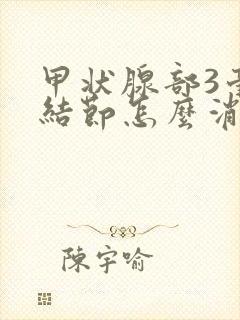 甲状腺部3
結節怎麼消
陳宇喻